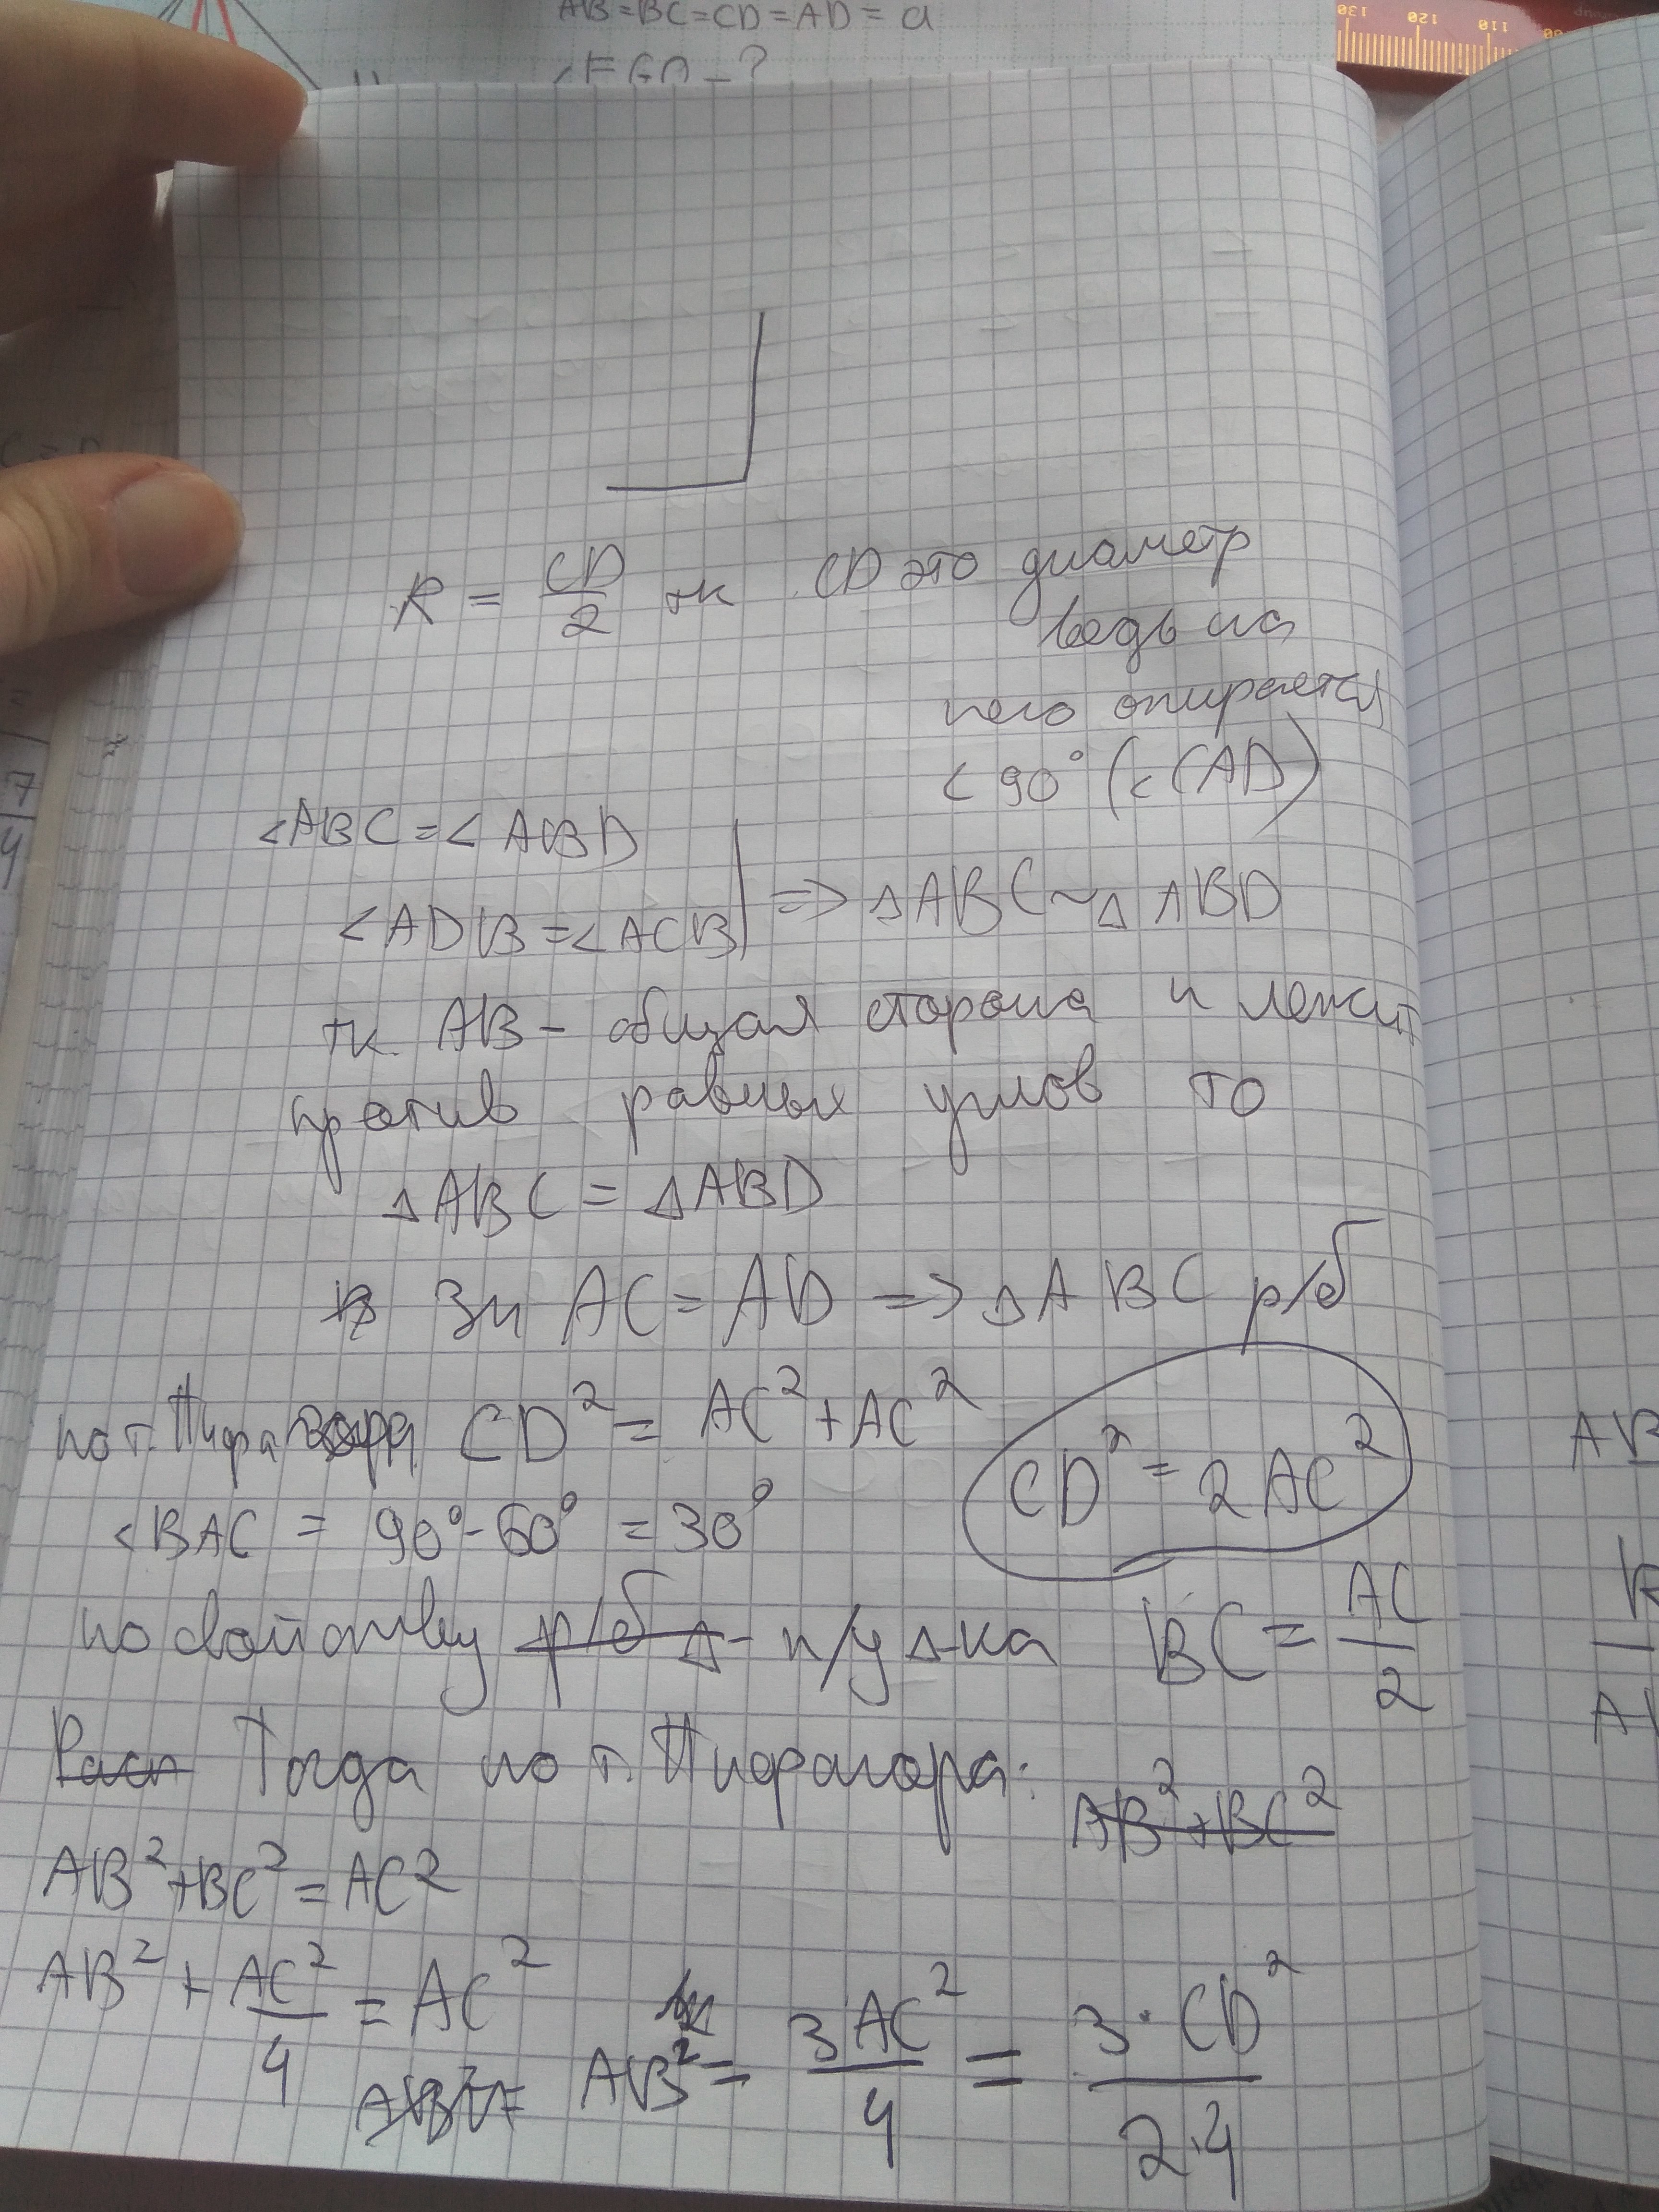 AB=BC=CD=AD=a
130 120 110
R = CD/2 тк CD это диаметр
ведь на
него опирается
<90° (<CAD)
<ABC=<ABD
<ADB=<ACB => ΔABC~Δ ABD
тк. AB - общая сторона и лежит
против равных углов то
ΔABC = ΔABD
Зн AC = AD => ΔABC р/б
по т. Пифагора CD² = AC²+AC²
CD² = 2AC²
<BAC = 90°-60° = 30°
по свойству р/б Δ- п/у Δ-ка BC = AC/2
Расп Тогда по т. Пифагора:
AB²+BC²
AB²+BC²=AC²
AB² + AC²/4 = AC²
AB²= AB²= 3AC²/4 = 3·CD²/2·4
7
4
AB